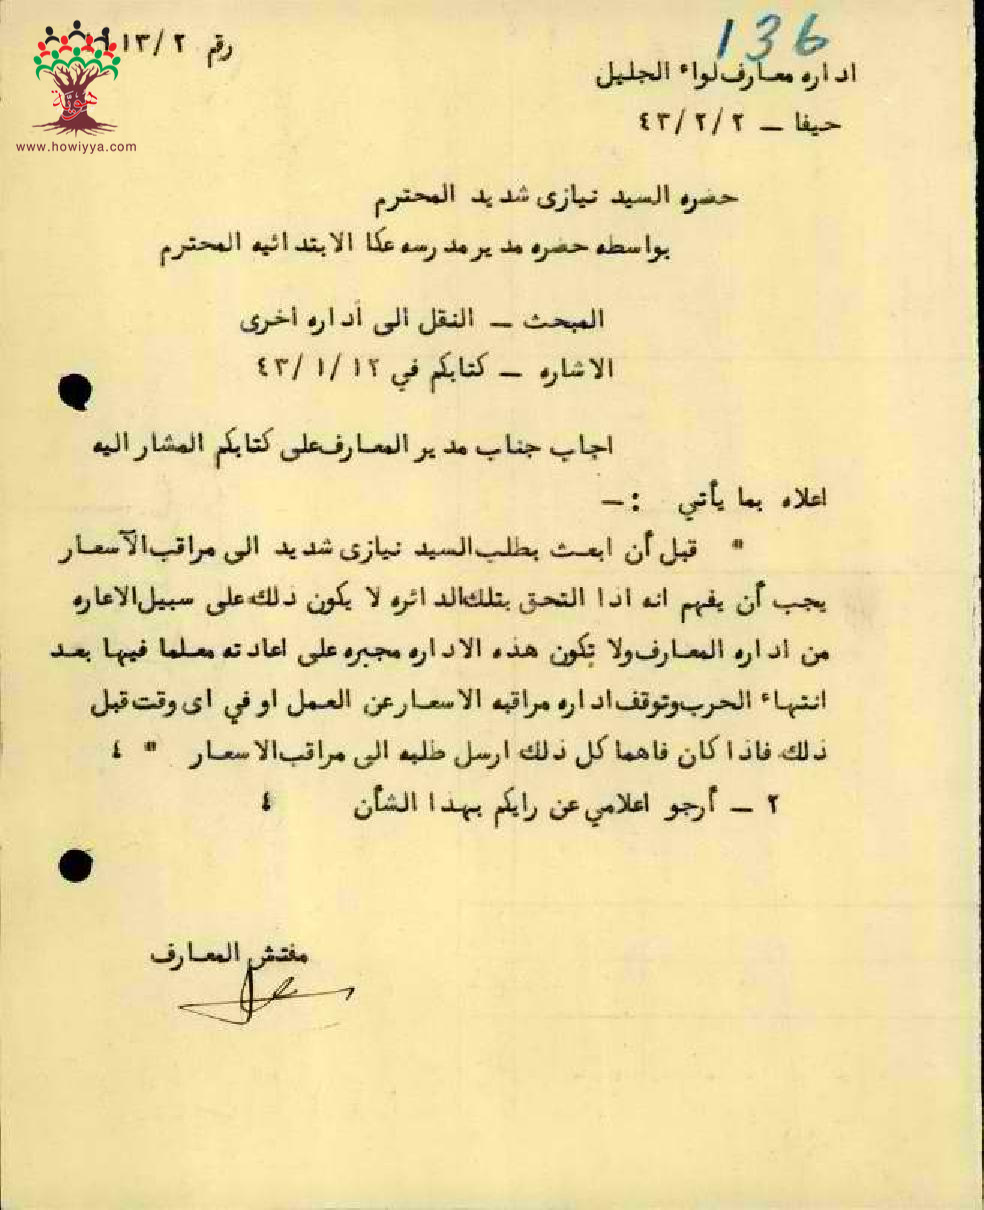 136
رقم ١٣/٢
اداره معارف لواء الجليل
حيفا – ٤٣/٢/٢
هوية
www.howiyya.com
حضره السيد نيازى شديد المحترم
بواسطه حضره مدير مدرسه عكا الابتدائيه المحترم
المبحث – النقل الى أداره اخرى
الاشاره – كتابكم في ٤٣/١/١٢
اجاب جناب مدير المعارف على كتابكم المشار اليه
اعلاه بما يأتي :–
" قبل أن ابعث بطلب السيد نيازى شديد الى مراقب الآسعار
يجب أن يفهم انه اذا التحق بتلك الدائره لا يكون ذلك على سبيل الاعاره
من اداره المعارف ولا تكون هذه الاداره مجبره على اعادته معلما فيها بعد
انتهاء الحرب وتوقف اداره مراقبه الاسعار عن العمل او في اى وقت قبل
ذلك فاذا كان فاهما كل ذلك ارسل طلبه الى مراقب الاسعار " ٤
٢ – أرجو اعلامي عن رايكم بهذا الشأن ٤
مفتش المعارف